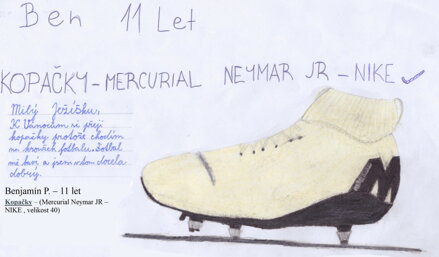 Ben 11 Let
KOPAČKY-MERCURIAL NEYMAR JR – NIKE ✓
Milý Ježíšku,
K Vánocům si přeji
kopačky protože chodím
na kroužek fotbalu. Fotbal
mě baví a jsem v tom docela
dobrý.
Benjamín P. – 11 let
Kopačky – (Mercurial Neymar JR –
NIKE , velikost 40)